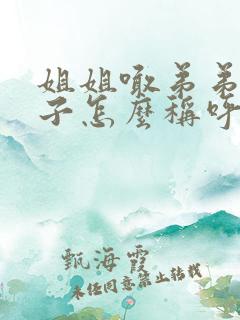 姐姐噉弟弟
子怎麼稱呼
甄海霞
未經同意禁止轉載